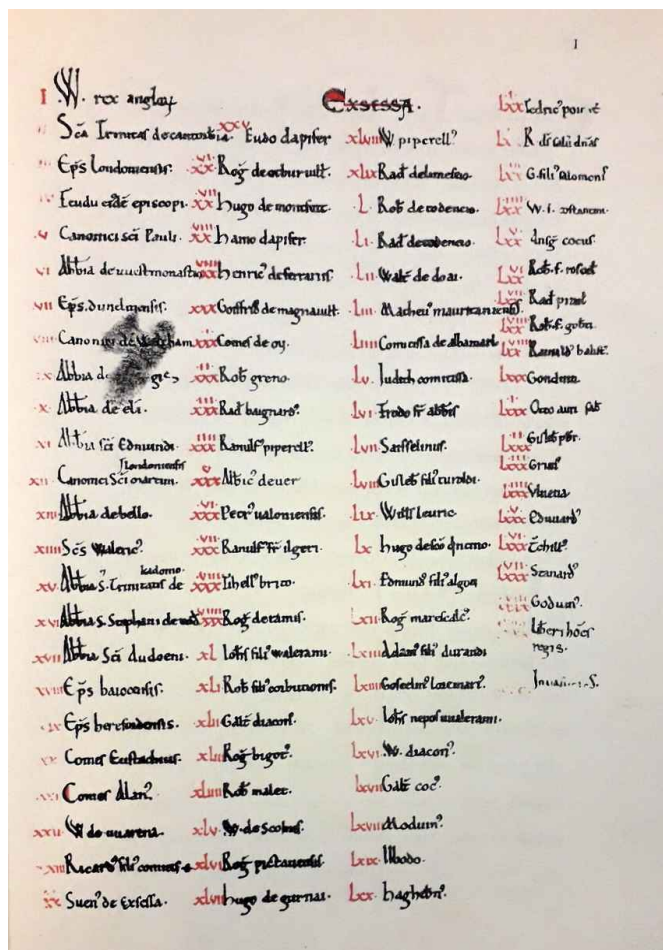 I
EXSESSA.
I W. rex anglo4
Scā Trinitas de cantuaria.
Ep̄s Londoniensis.
Feudū eidē episcopi
V Canonici scī Pauli.
VI Abb̄ia de uuestmonast
VII Ep̄s. dunelmensis.
VIII Canonici de Waltham
IX Abb̄ia de
X Abb̄ia de eli.
XI Abb̄ia scī Edmundi.
XII Canonici Scī Martini. Londoniensis
XIII Abb̄ia de bello.
XIIII Scs Waleric᷒
XV Abb̄ia S. Trinitatis de kadomo.
XVI Abb̄ia S. Stephani de
XVII Abb̄ia Scī Audoeni.
XVIII Ep̄s baiocensis.
XIX Ep̄s herefordensis.
XX Comes Eustachius.
XXI Comes Alan᷒
XXII W de uuarena.
XXIII Ricard᷒ filī comitis
Suen᷒ de Exsessa.
XXV Eudo dapifer
XXVI Rog̅ de
XXVII hugo de montfort.
XXVIII hamo dapifer.
XXVIIII henric᷒ de ferrariis.
XXX Goisfrid᷒ de magnauilł.
XXXI Comes de oy.
XXXII Rob̄ greno.
XXXIII Rad̄ baignard᷒
XXXIIII Rannulf᷒ piperell᷒
XXXV Albic᷒ de uer
XXXVI Petr᷒ ualoniensis.
XXXVII Ranulf᷒ fr̄ ilgeri.
XXXVIII Tihell᷒ brito.
XXXVIIII Rog̅ de ramis.
XL Ioh̄s filī walerami.
XLI Rob̄ filī corbutionis.
XLII Galt̄ diacon᷒
XLIII Rog̅ bigot᷒
XLIIII Rob̄ malet.
XLV W. de Scohies.
XLVI Rog̅ pictauensis.
XLVII hugo de gurnai.
XLVIII W. piperell᷒
XLIX Rad̄ de limeseio.
L Rob̄ de todeneio.
LI Rad̄ de todeneio.
LII Walt̄ de doai.
LIII Matheu᷒ mauritaniensis.
LIIII Comitissa de albamarla
LV Judeth comitissa.
LVI Frodo fr̄ abbīs
LVII Saisselinus.
LVIII Gislebt̄ filī turoldi.
LIX Wilłs leuric.
LX hugo de scō quintino.
LXI Edmund᷒ filī algoti
LXII Rog̅ marescalc᷒
LXIII Adam filī durandi
LXIIII Goscelm᷒ lorimari᷒
LXV Ioh̄s nepos uualerami.
LXVI W. diacon᷒
LXVII Galt̄ coc᷒
LXVIII Moduin᷒
LXIX Ilbodo.
LXX haghebn᷒
LXXI Tedric᷒ point
LXXII R
LXXIII G. filī Salomon᷒
LXXIIII W. f. constantini.
LXXV Ansg̅ cocus.
LXXVI Rob̄. f. roscel
LXXVII Rad̄ pinel
LXXVIII Rob̄. f. gobti.
LXXVIIII Rainald᷒ balist.
LXXX Gondwin
LXXXI Otto aurifab̄
LXXXII Gislebt̄ pbr.
LXXXIII Grim᷒
LXXXIIII Vlueua
LXXXV Eduuard᷒
LXXXVI Tchill᷒
LXXXVII Stanard᷒
Goduin᷒
Liberi hōes
regis.